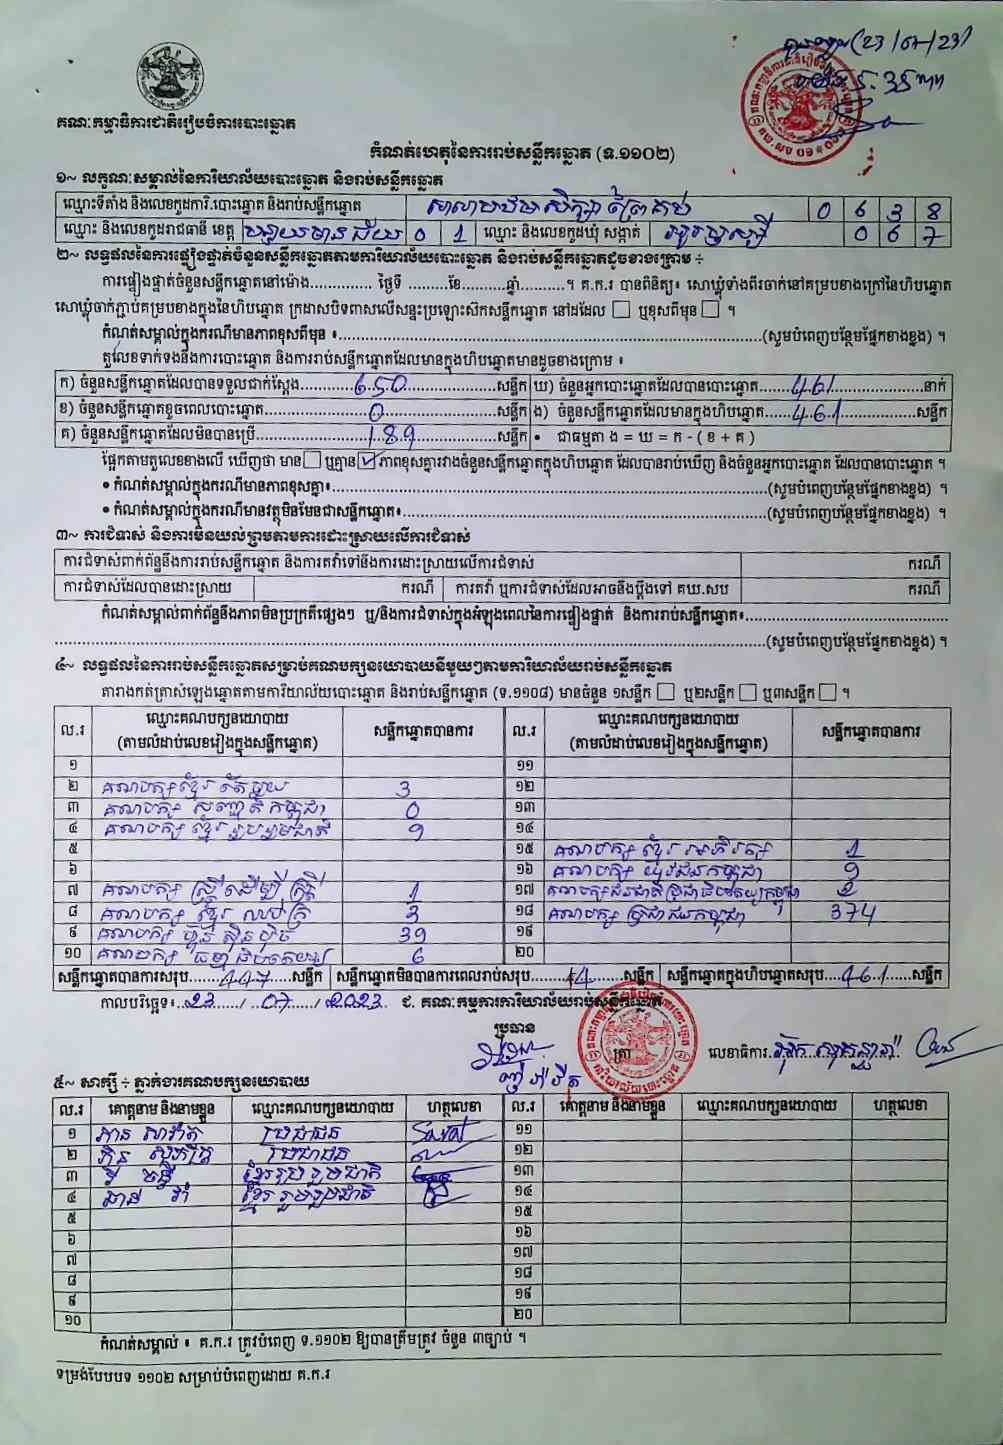 (23/07/23)
គណៈកម្មាធិការជាតិរៀបចំការបោះឆ្នោត
កំណត់ហេតុនៃការរាប់សន្លឹកឆ្នោត (ទ.១១០២)
១~ លក្ខណៈសម្គាល់នៃការិយាល័យបោះឆ្នោត និងរាប់សន្លឹកឆ្នោត
ឈ្មោះទីតាំង និងលេខកូដការិ.បោះឆ្នោត និងរាប់សន្លឹកឆ្នោត សាលាបឋមសិក្សា ព្រៃគប់ 0 6 3 8
ឈ្មោះ និងលេខកូដរាជធានី ខេត្ត បន្ទាយមានជ័យ 0 1 ឈ្មោះ និងលេខកូដឃុំ សង្កាត់ 0 6 7
២~ លទ្ធផលនៃការផ្ទៀងផ្ទាត់ចំនួនសន្លឹកឆ្នោតតាមការិយាល័យបោះឆ្នោត និងរាប់សន្លឹកឆ្នោតដូចខាងក្រោម ÷
ការផ្ទៀងផ្ទាត់ចំនួនសន្លឹកឆ្នោតនៅម៉ោង............... ថ្ងៃទី .........ខែ.........ឆ្នាំ.........។ គ.ក.រ បានពិនិត្យ៖ សោឃ្លុំទាំងពីរចាក់នៅគម្របខាងក្រៅនៃហិបឆ្នោត
សោឃ្លុំចាក់ភ្ជាប់គម្របខាងក្នុងនៃហិបឆ្នោត ក្រដាសបិទពាសលើសន្ទះប្រឡោះស៊កសន្លឹកឆ្នោត នៅដដែល ☐ ឬខុសពីមុន ☐ ។
កំណត់សម្គាល់ក្នុងករណីមានភាពខុសពីមុន ៖..........(សូមបំពេញបន្ថែមផ្នែកខាងខ្នង) ។
តួលេខទាក់ទងនឹងការបោះឆ្នោត និងការរាប់សន្លឹកឆ្នោតដែលមានក្នុងហិបឆ្នោតមានដូចខាងក្រោម ៖
ក) ចំនួនសន្លឹកឆ្នោតដែលបានទទួលជាក់ស្តែង.....650.....សន្លឹក ឃ) ចំនួនអ្នកបោះឆ្នោតដែលបានបោះឆ្នោត.....461.....នាក់
ខ) ចំនួនសន្លឹកឆ្នោតខូចពេលបោះឆ្នោត.....0.....សន្លឹក ង) ចំនួនសន្លឹកឆ្នោតដែលមានក្នុងហិបឆ្នោត.....461.....សន្លឹក
គ) ចំនួនសន្លឹកឆ្នោតដែលមិនបានប្រើ.....189.....សន្លឹក • ជាធម្មតា ង = ឃ = ក - ( ខ + គ )
ផ្អែកតាមតួលេខខាងលើ ឃើញថា មាន ☐ ឬគ្មាន ☑ ភាពខុសគ្នារវាងចំនួនសន្លឹកឆ្នោតក្នុងហិបឆ្នោត ដែលបានរាប់ឃើញ និងចំនួនអ្នកបោះឆ្នោត ដែលបានបោះឆ្នោត ។
• កំណត់សម្គាល់ក្នុងករណីមានភាពខុសគ្នា៖..........(សូមបំពេញបន្ថែមផ្នែកខាងខ្នង) ។
• កំណត់សម្គាល់ក្នុងករណីមានវត្ថុមិនមែនជាសន្លឹកឆ្នោត៖..........(សូមបំពេញបន្ថែមផ្នែកខាងខ្នង) ។
៣~ ការជំទាស់ និងការមិនយល់ព្រមតាមការដោះស្រាយលើការជំទាស់
ការជំទាស់ពាក់ព័ន្ធនឹងការរាប់សន្លឹកឆ្នោត និងការតវ៉ាទៅនឹងការដោះស្រាយលើការជំទាស់ ករណី
ការជំទាស់ដែលបានដោះស្រាយ ករណី ការតវ៉ា ឬការជំទាស់ដែលអាចនឹងប្តឹងទៅ គឃ.សប ករណី
កំណត់សម្គាល់ពាក់ព័ន្ធនឹងភាពមិនប្រក្រតីផ្សេងៗ ឬ/និងការជំទាស់ក្នុងអំឡុងពេលនៃការផ្ទៀងផ្ទាត់ និងការរាប់សន្លឹកឆ្នោត៖..........
..........(សូមបំពេញបន្ថែមផ្នែកខាងខ្នង) ។
៤~ លទ្ធផលនៃការរាប់សន្លឹកឆ្នោតសម្រាប់គណបក្សនយោបាយនីមួយៗតាមការិយាល័យរាប់សន្លឹកឆ្នោត
តារាងកត់ត្រាសំឡេងឆ្នោតតាមការិយាល័យបោះឆ្នោត និងរាប់សន្លឹកឆ្នោត (ទ.១១០៨) មានចំនួន ១សន្លឹក ☐ ឬ២សន្លឹក ☐ ឬ៣សន្លឹក ☐ ។
ល.រ ឈ្មោះគណបក្សនយោបាយ សន្លឹកឆ្នោតបានការ ល.រ ឈ្មោះគណបក្សនយោបាយ សន្លឹកឆ្នោតបានការ
(តាមលំដាប់លេខរៀងក្នុងសន្លឹកឆ្នោត) (តាមលំដាប់លេខរៀងក្នុងសន្លឹកឆ្នោត)
១ ១១
២ គណបក្ស ខ្មែរ តែមួយ 3 ១២
៣ គណបក្ស សញ្ជាតិកម្ពុជា 0 ១៣
៤ គណបក្ស ខ្មែរ រួបរួមជាតិ 9 ១៤
៥ ១៥ គណបក្ស ខ្មែរ អភិរក្ស 1
៦ ១៦ គណបក្ស យុវជនកម្ពុជា 9
៧ គណបក្ស ស្ត្រីដើម្បីស្ត្រី 1 ១៧ គណបក្សជនជាតិប្រជាធិបតេយ្យកម្ពុជា 2
៨ គណបក្ស ខ្មែរ ឈប់ក្រ 3 ១៨ គណបក្ស ប្រជាជនកម្ពុជា 374
៩ គណបក្ស ហ៊្វុនស៊ិនប៉ិច 39 ១៩
១០ គណបក្ស ធម្មាធិបតេយ្យ 6 ២០
សន្លឹកឆ្នោតបានការសរុប.....447.....សន្លឹក សន្លឹកឆ្នោតមិនបានការពេលរាប់សរុប.....14.....សន្លឹក សន្លឹកឆ្នោតក្នុងហិបឆ្នោតសរុប.....461.....សន្លឹក
កាលបរិច្ឆេទ៖..23../..07../..2023 ជ. គណៈកម្មការការិយាល័យរាប់សន្លឹកឆ្នោត
ប្រធាន
ត្រា លេខាធិការ
៥~ សាក្សី ÷ ភ្នាក់ងារគណបក្សនយោបាយ
ល.រ គោត្តនាម និងនាមខ្លួន ឈ្មោះគណបក្សនយោបាយ ហត្ថលេខា ល.រ គោត្តនាម និងនាមខ្លួន ឈ្មោះគណបក្សនយោបាយ ហត្ថលេខា
១ ប្រជាជន ១១
២ ប្រជាជន ១២
៣ ខ្មែររួបរួមជាតិ ១៣
៤ ខ្មែរ រួបរួមជាតិ ១៤
៥ ១៥
៦ ១៦
៧ ១៧
៨ ១៨
៩ ១៩
១០ ២០
កំណត់សម្គាល់ ៖ គ.ក.រ ត្រូវបំពេញ ទ.១១០២ ឱ្យបានត្រឹមត្រូវ ចំនួន ៣ច្បាប់ ។
ទម្រង់បែបបទ ១១០២ សម្រាប់បំពេញដោយ គ.ក.រ